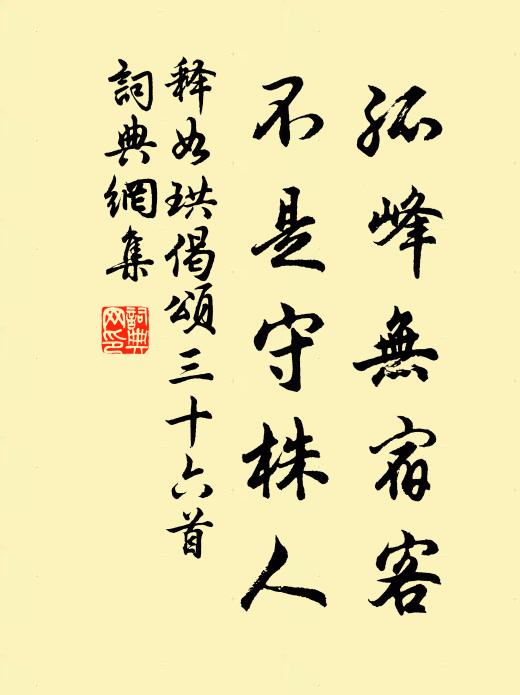 孤峰無宿客
不是守株人
释如珙偈頌三十六首
詞典網集
詞典网印